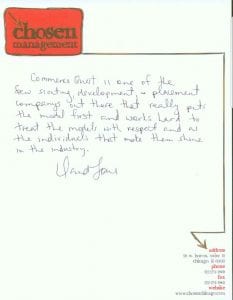 chosen
management
Commeres Quest is one of the
few scouting, development, + placement
companys out there that really puts
the model first and works hard to
treat the models with respect and as
the individuals that make them shine
in the industry.
address
chicago il
phone
fax
website
www.chosenchicago.com